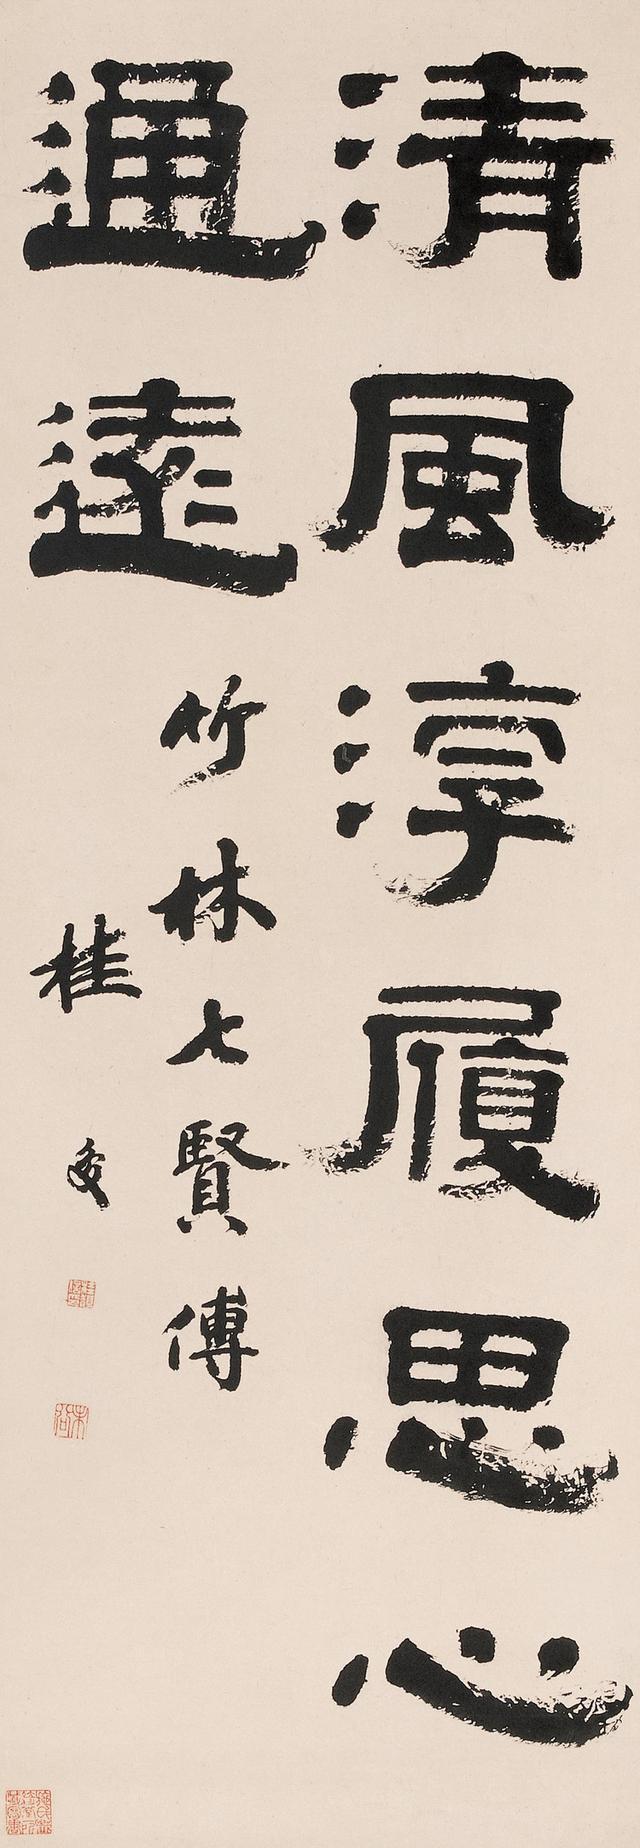 清風淳履思心
通遠
竹林七賢傅
桂馥